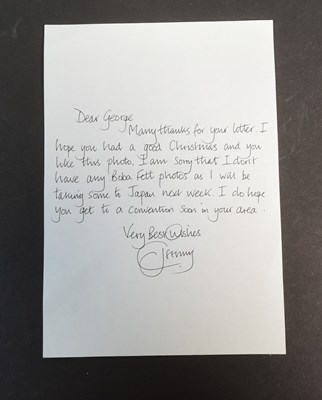 Dear George
Many thanks for your letter. I
hope you had a good Christmas and you
like this photo. I am sorry that I don't
have any Boba Fett photos as I will be
taking some to Japan next week. I do hope
you get to a convention soon in your area.
Very Best Wishes
Jeremy